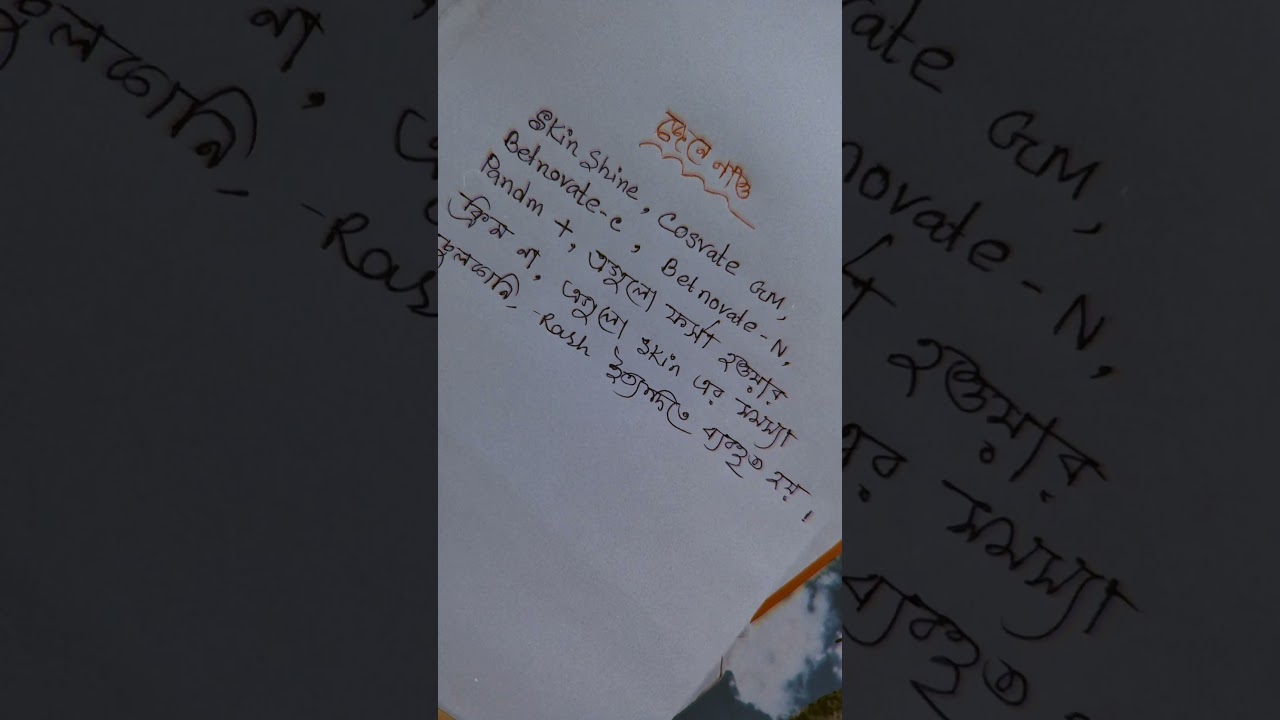 জেনে নাও
Skin Shine, Cosvate GM,
Betnovate-C, Betnovate-N,
Pandm +, এগুলো ফর্সা হওয়ার
ক্রিম না, এগুলো skin এর সমস্যা
চুলকানি, -Rash ইত্যাদিতে ব্যবহৃত হয়।